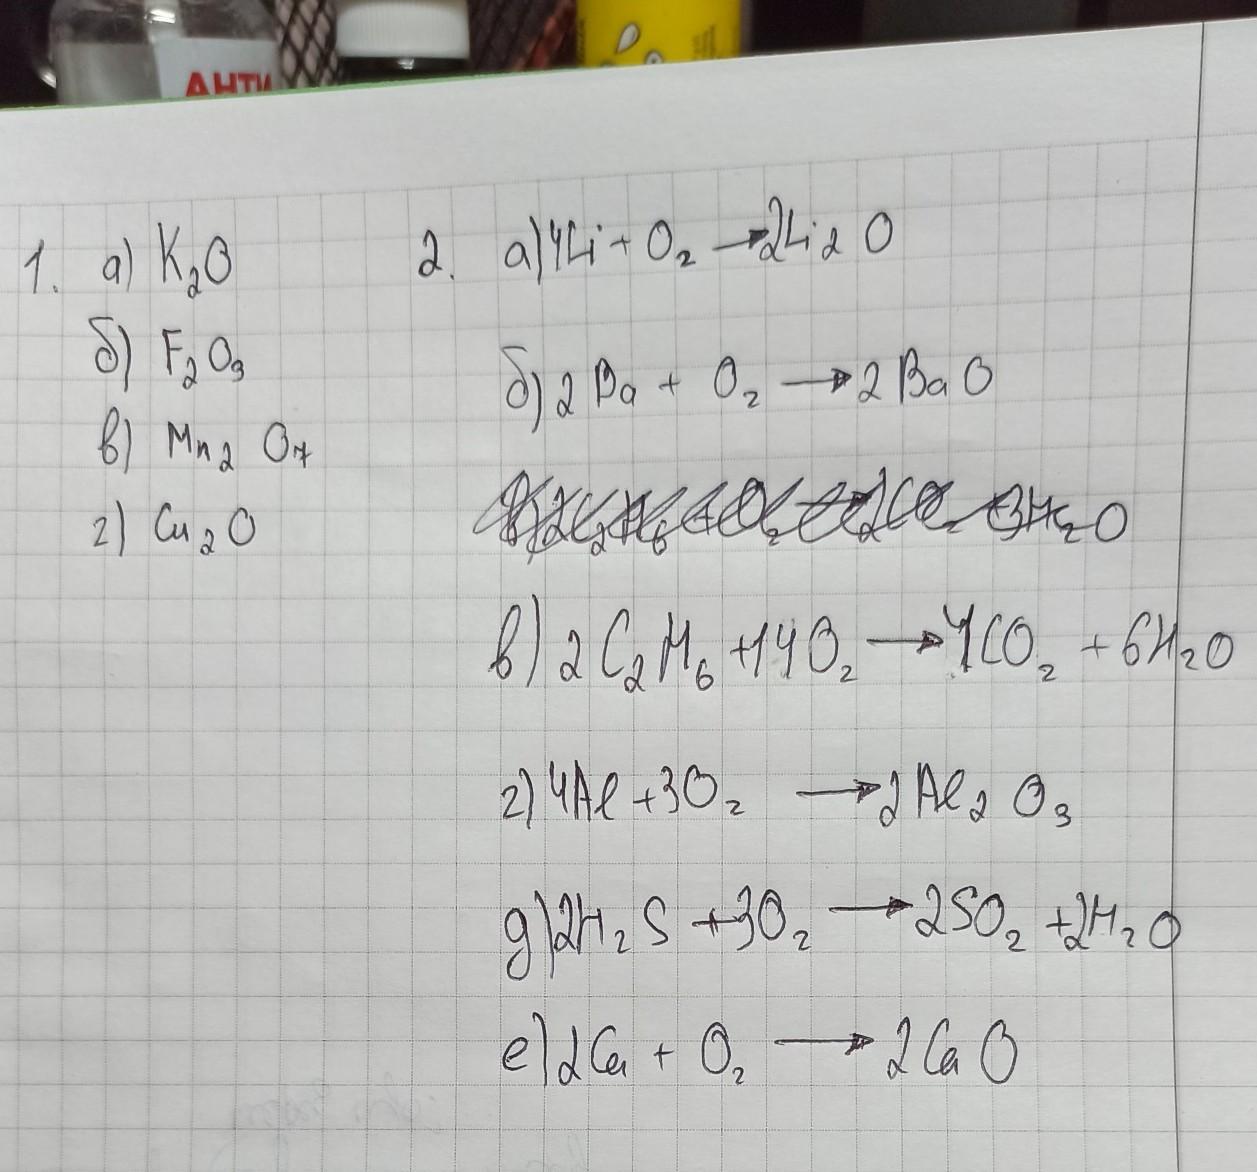 АНТИ
1. а) K₂O
б) F₂O₃
в) Mn₂O₇
г) Cu₂O
2. а) 4Li + O₂ → 2Li₂O
б) 2Ba + O₂ → 2BaO
в) 2C₂H₆ + 14O₂ → 4CO₂ + 6H₂O
г) 4Al + 3O₂ → 2Al₂O₃
д) 2H₂S + 3O₂ → 2SO₂ + 2H₂O
е) 2Ca + O₂ → 2CaO